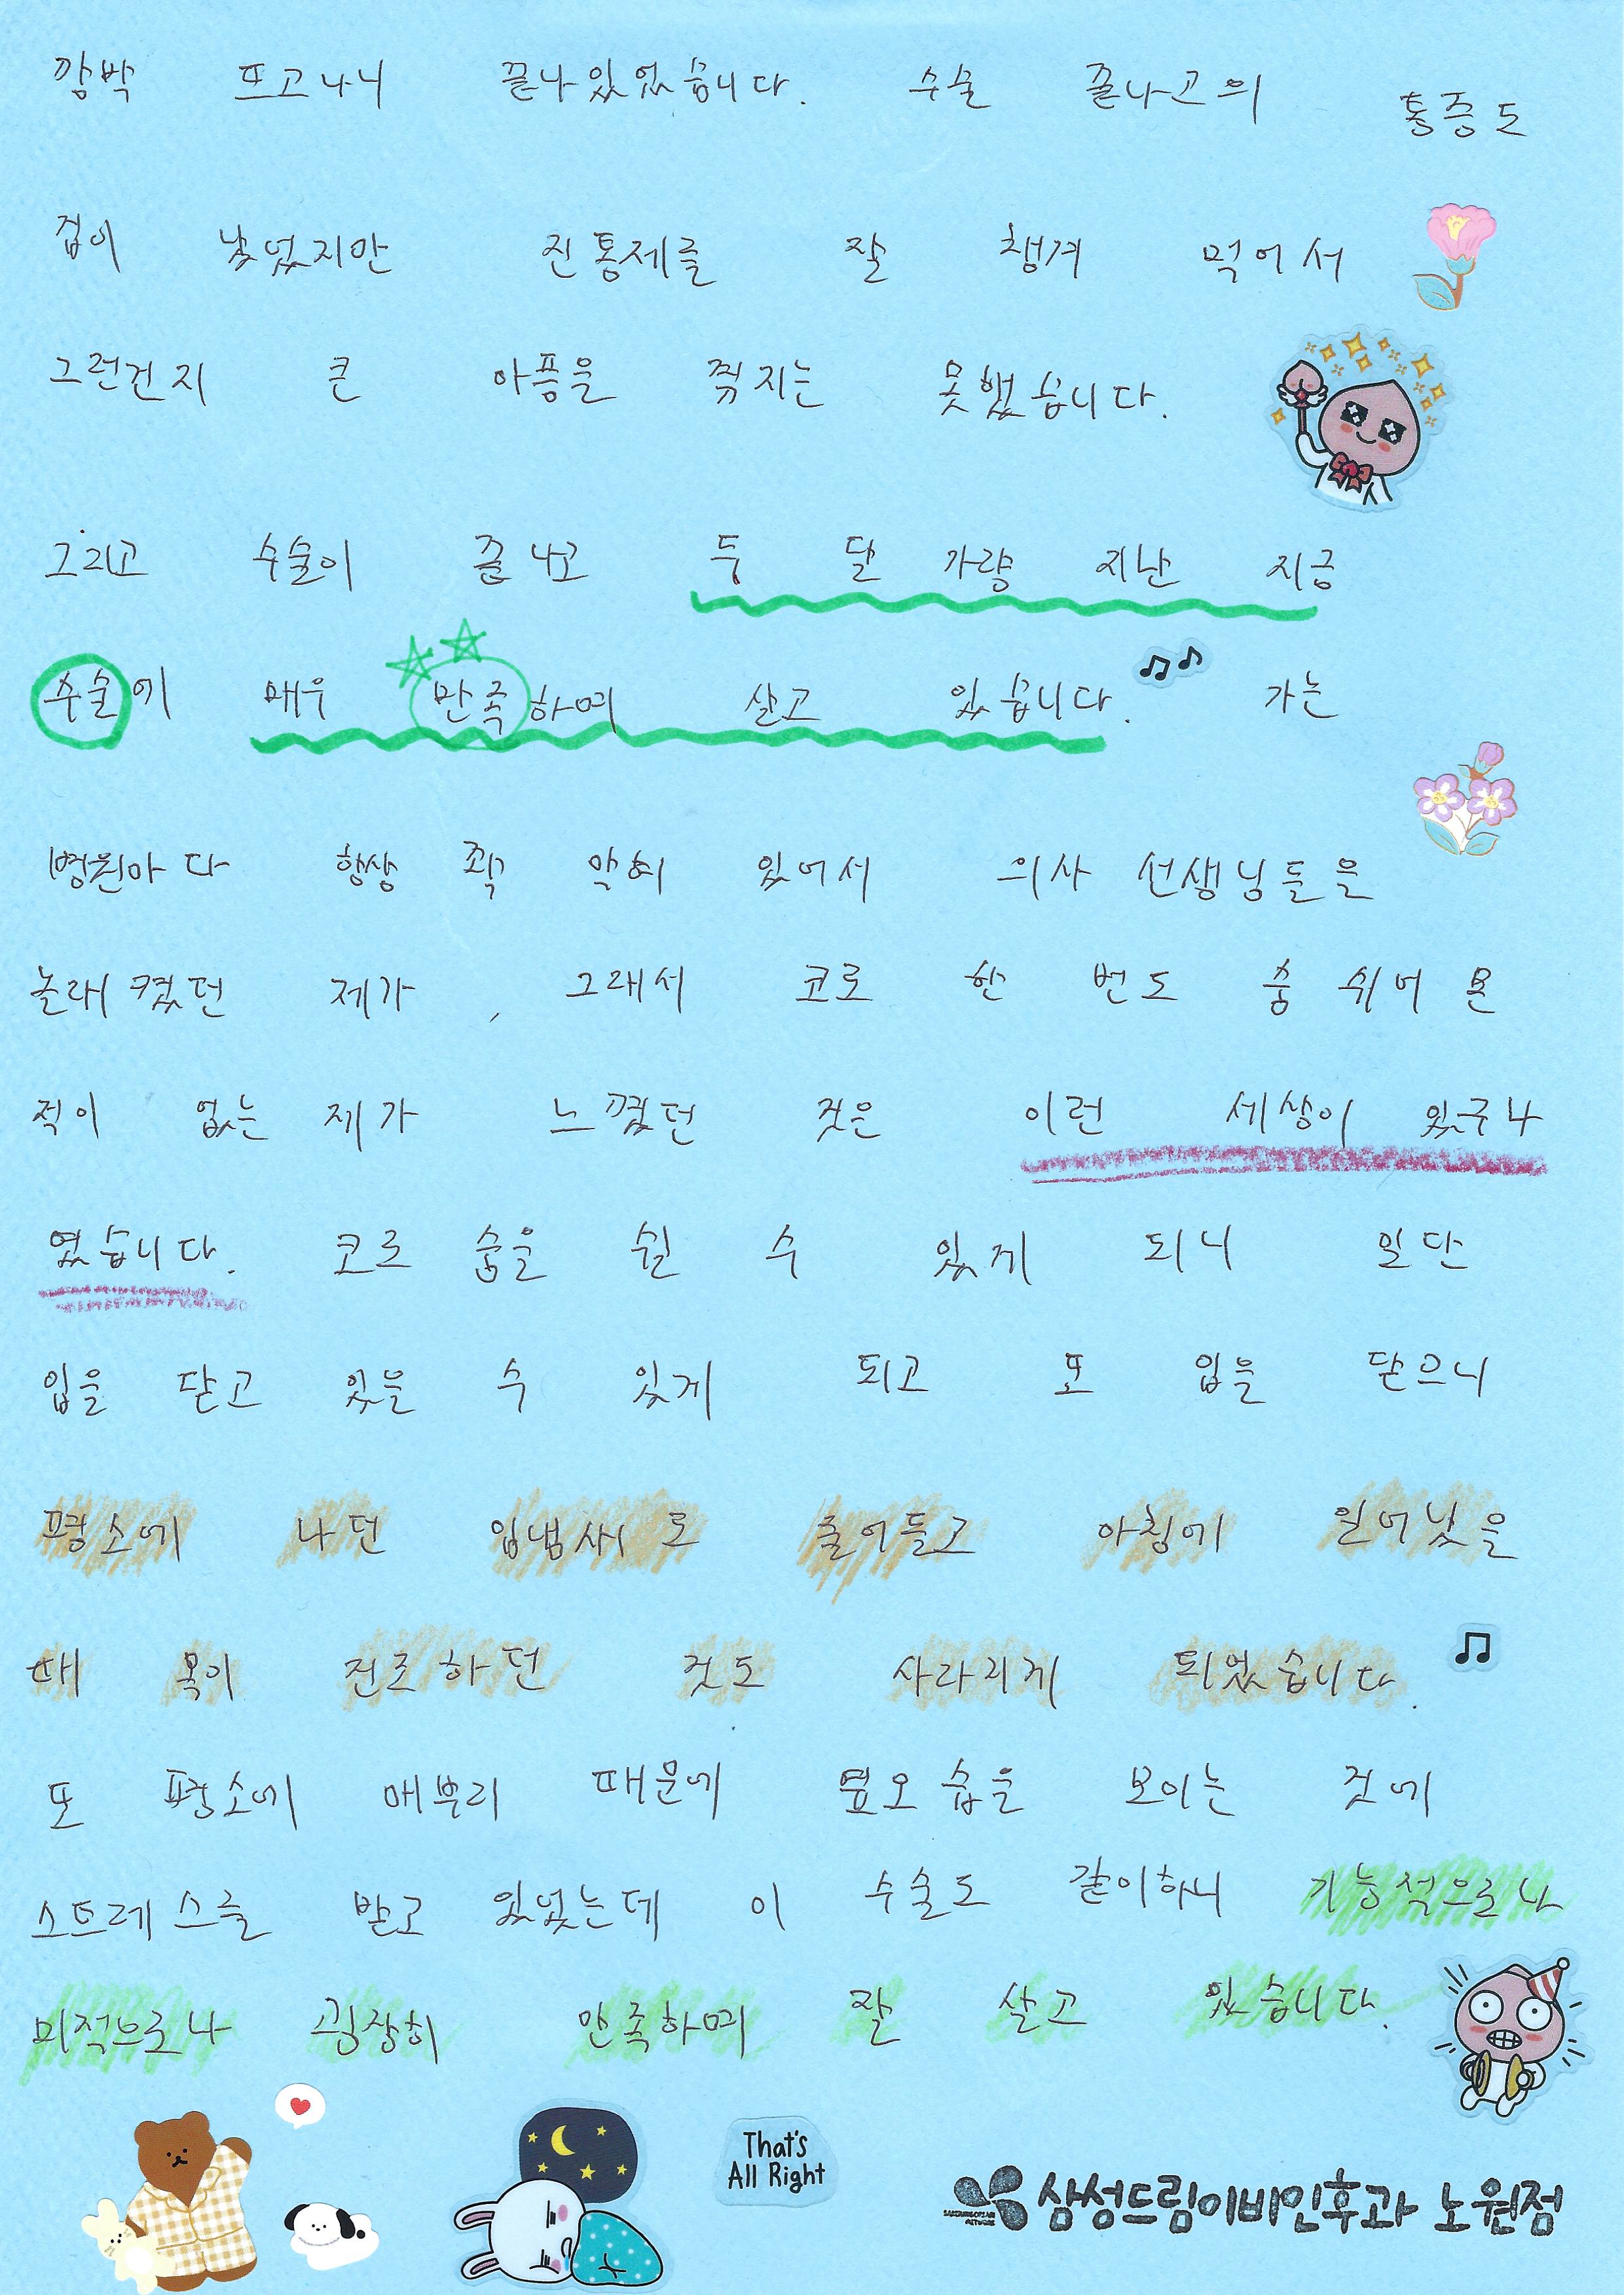 깜박 뜨고나니 끝나있었습니다. 수술 끝나고의 통증도
겁이 났었지만 진통제를 잘 챙겨 먹어서
그런건지 큰 아픔을 겪지는 못했습니다.
그리고 수술이 끝나고 두 달 가량 지난 지금
수술에 매우 만족하며 살고 있습니다. 가는
병원마다 항상 꽉 막혀 있어서 의사 선생님들을
놀래켰던 제가, 그래서 코로 한 번도 숨 쉬어 본
적이 없는 제가 느꼈던 것은 이런 세상이 있구나
였습니다. 코로 숨을 쉴 수 있게 되니 일단
입을 닫고 있을 수 있게 되고 또 입을 닫으니
평소에 나던 입냄새도 줄어들고 아침에 일어났을
때 목이 건조하던 것도 사라지게 되었습니다.
또 평소에 매부리 때문에 옆모습을 보이는 것에
스트레스를 받고 있었는데 이 수술도 같이하니 기능적으로나
미적으로나 굉장히 만족하며 잘 살고 있습니다.
That's
All Right
삼성드림이비인후과 노원점